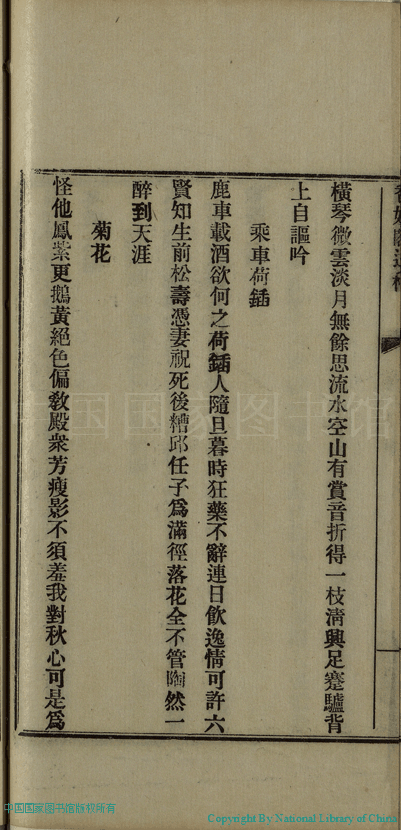 橫琴微雲淡月無餘思流水空山有賞音折得一枝淸興足蹇驢背
上自謳吟
乘車荷鍤
鹿車載酒欲何之荷鍤人隨旦暮時狂藥不辭連日飮逸情可許六
賢知生前松壽憑妻祝死後糟邱任子爲滿徑落花全不管陶然一
醉到天涯
菊花
怪他鳳紫更鵝黃絕色偏敎殿衆芳瘦影不須羞我對秋心可是爲
中国国家图书馆
中国国家图书馆版权所有
Copyright By National Library of China